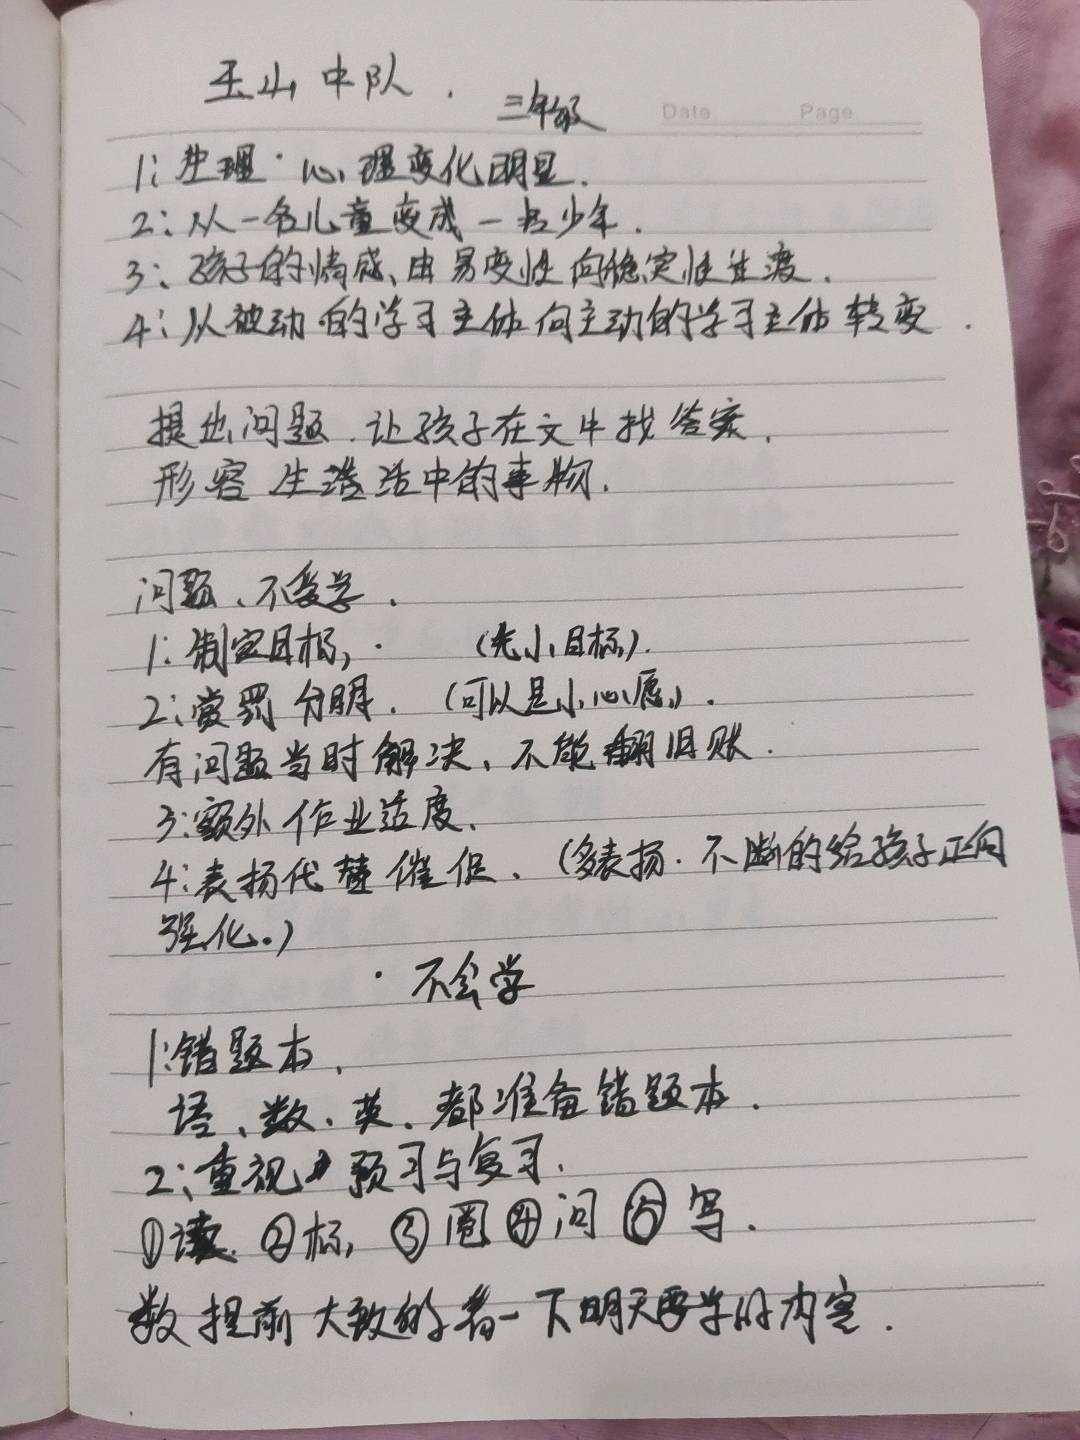 玉山中队.
三年级
Date Page
1:生理·心理变化明显.
2:从一名儿童变成一名少年.
3:、孩子的情感、由易变性向稳定性过渡.
4:从被动的学习主体向主动的学习主体转变.
提出问题.让孩子在文中找答案.
形容生活中的事物.
问题、不爱学.
1:制定目标,. (先小目标).
2:赏罚分明. (可以是小心愿,).
有问题当时解决、不能翻旧账.
3:额外作业适度.
4:表扬代替催促.(多表扬.不断的给孩子正向
强化.)
·不会学
1:错题本.
语、数、英、都准备错题本.
2:重视预习与复习.
①读.②标,③圈④问⑤写.
数提前大致的看一下明天要学的内容.